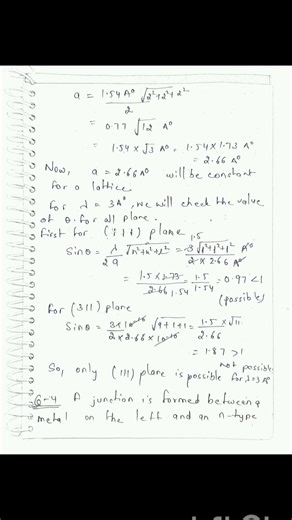 a = 1.54 A° √2²+2²+2² / 2
= 0.77 √12 A°
= 1.54 × √3 A° = 1.54 × 1.73 A°
= 2.66 A°
Now, a = 2.66 A° will be constant
for a lattice.
for λ = 3A°, we will check the value
of θ. for all plane.
first for (111) plane
Sinθ = λ/2a √h²+k²+l² = 1.5 3 √1²+1²+1² A° / 2 × 2.66 A°
= 1.5 × 1.73 / 2.66 1.54 = 1.5 / 1.54 = 0.97 < 1
(possible)
For (311) plane
Sinθ = 3×10⁻¹⁰ √9+1+1 / 2×2.66×10⁻¹⁰ = 1.5 × √11 / 2.66
= 1.87 > 1
not possible
So, only (111) plane is possible for λ=3A°
Q-4 A junction is formed between a
metal on the left and an n-type